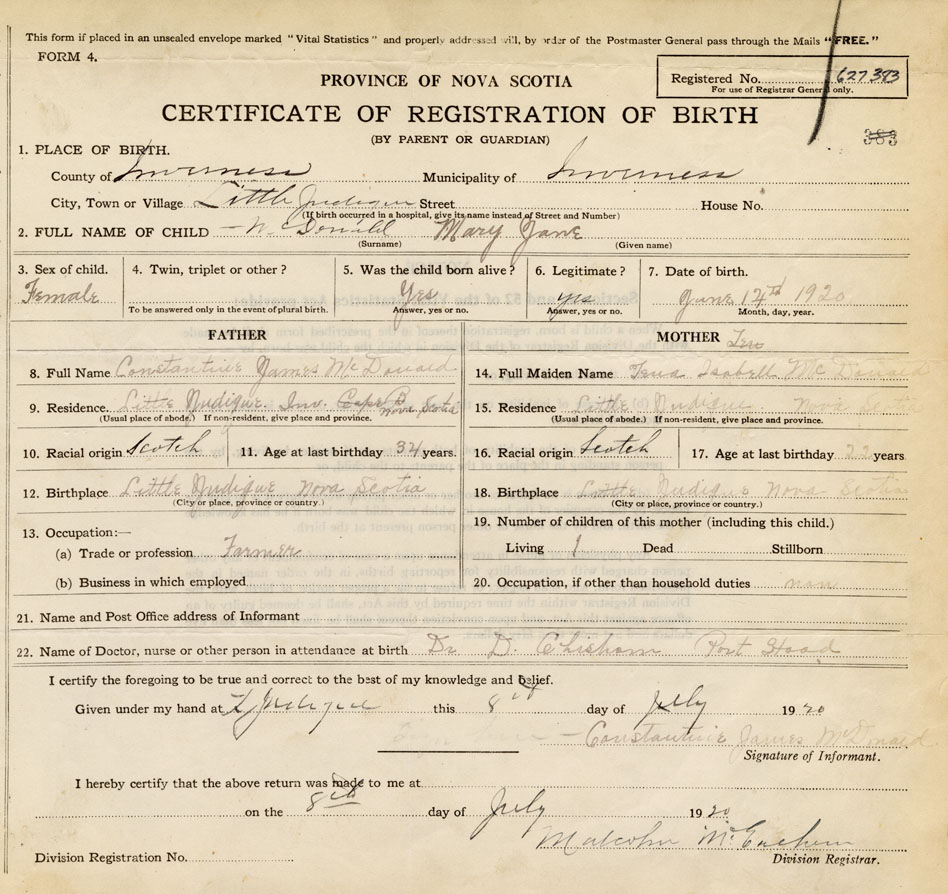 This form if placed in an unsealed envelope marked "Vital Statistics" and properly addressed will, by order of the Postmaster General pass through the Mails "FREE."
FORM 4.
Registered No. 627383
For use of Registrar General only.
PROVINCE OF NOVA SCOTIA
CERTIFICATE OF REGISTRATION OF BIRTH
(BY PARENT OR GUARDIAN)
383
1. PLACE OF BIRTH.
County of Inverness Municipality of Inverness
City, Town or Village Little Judique Street House No.
(If birth occurred in a hospital, give its name instead of Street and Number)
2. FULL NAME OF CHILD McDonald Mary Jane
(Surname) (Given name)
3. Sex of child. 4. Twin, triplet or other? 5. Was the child born alive? 6. Legitimate? 7. Date of birth.
Female Yes yes June 14th 1920
To be answered only in the event of plural birth. Answer, yes or no. Answer, yes or no. Month, day, year.
FATHER
8. Full Name Constantine James McDonald
9. Residence. Little Judique Inv. Cape B Nova Scotia
(Usual place of abode.) If non-resident, give place and province.
10. Racial origin Scotch 11. Age at last birthday 34 years.
12. Birthplace Little Judique Nova Scotia
(City or place, province or country.)
13. Occupation:—
(a) Trade or profession Farmer
(b) Business in which employed
MOTHER
14. Full Maiden Name Tena Isabell McDonald
15. Residence Little Judique Nova
(Usual place of abode.) If non-resident, give place and province.
16. Racial origin Scotch 17. Age at last birthday 22 years
18. Birthplace Little Judique Nova Scotia
(City or place, province or country.)
19. Number of children of this mother (including this child.)
Living 1 Dead Stillborn
20. Occupation, if other than household duties
21. Name and Post Office address of Informant
22. Name of Doctor, nurse or other person in attendance at birth Dr D. Chisholm Port Hood
I certify the foregoing to be true and correct to the best of my knowledge and belief.
Given under my hand at L Judique this 8th day of July 1920
Constantine James McDonald
Signature of Informant.
I hereby certify that the above return was made to me at
on the 8th day of July 1920
Malcolm McEachern
Division Registration No. Division Registrar.